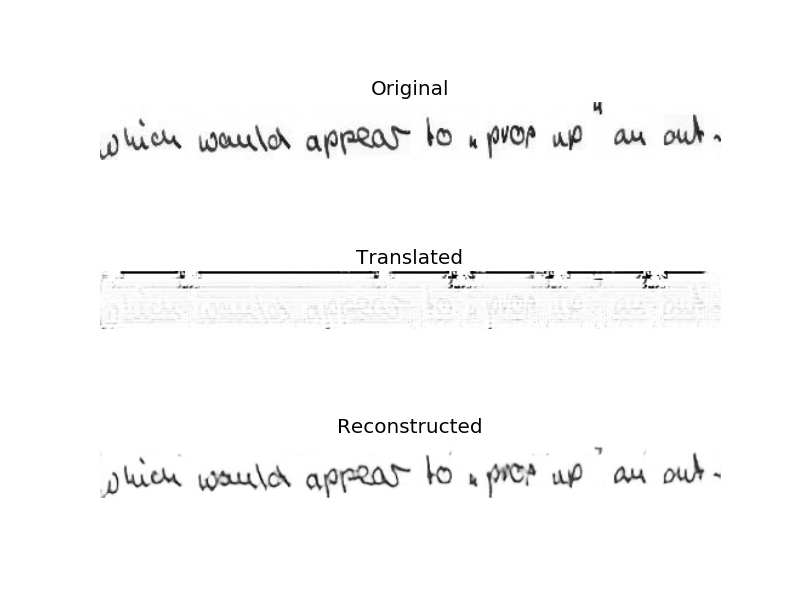 Original
which would appear to „prop up" an out-
Translated
which would appear to „prop up" an out-
Reconstructed
which would appear to „prop up" an out-